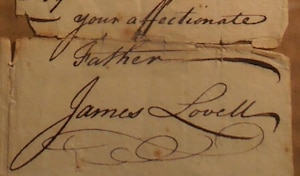 your affectionate
Father
James Lovell